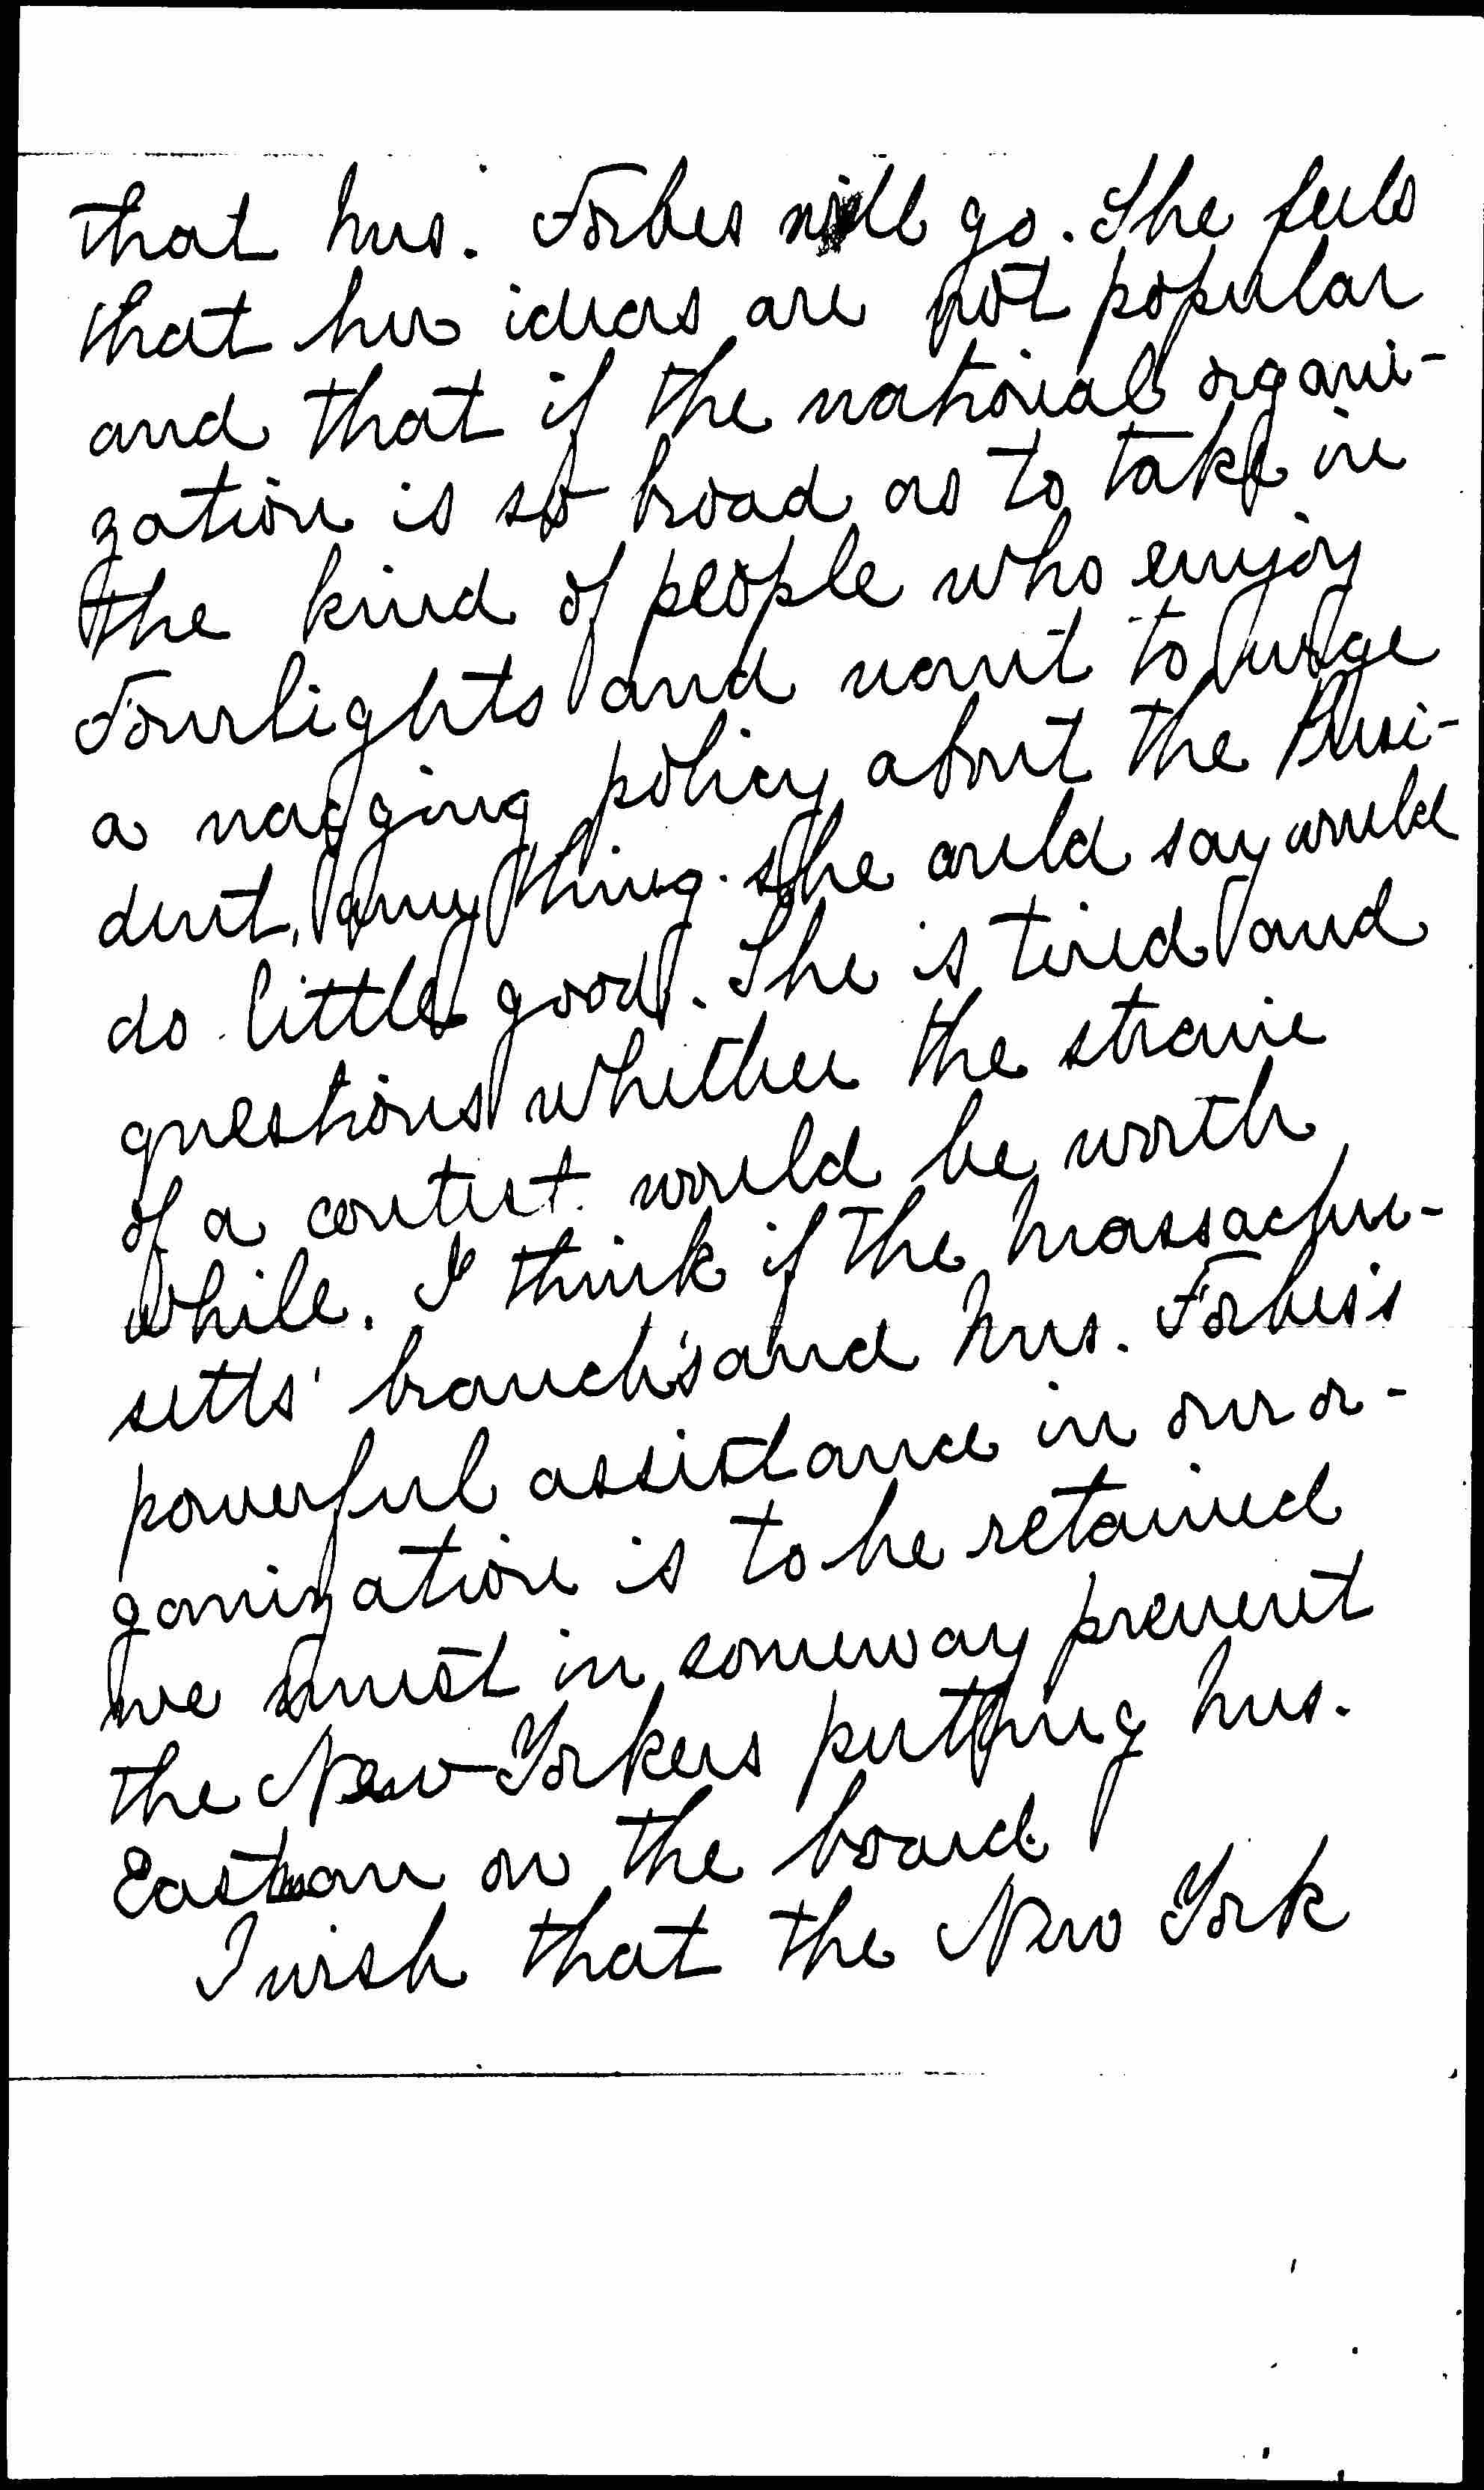 that Mrs. Forbes will go. She feels
that her ideas are not popular
and that if the national organi-
zation is so broad as to take in
the kind of people who enjoy
Fourlights and want to urge
a nagging policy about the Presi-
dent, anything she could say would
do little good. She is tired and
questions whether the strain
of a contest would be worth
while. I think if the Massachu-
setts' branch's and Mrs. Forbes's
powerful assistance in our or-
ganization is to be retained
we must in someway prevent
the New-Yorkers putting Mrs.
Eastman on the board.
I wish that the New York